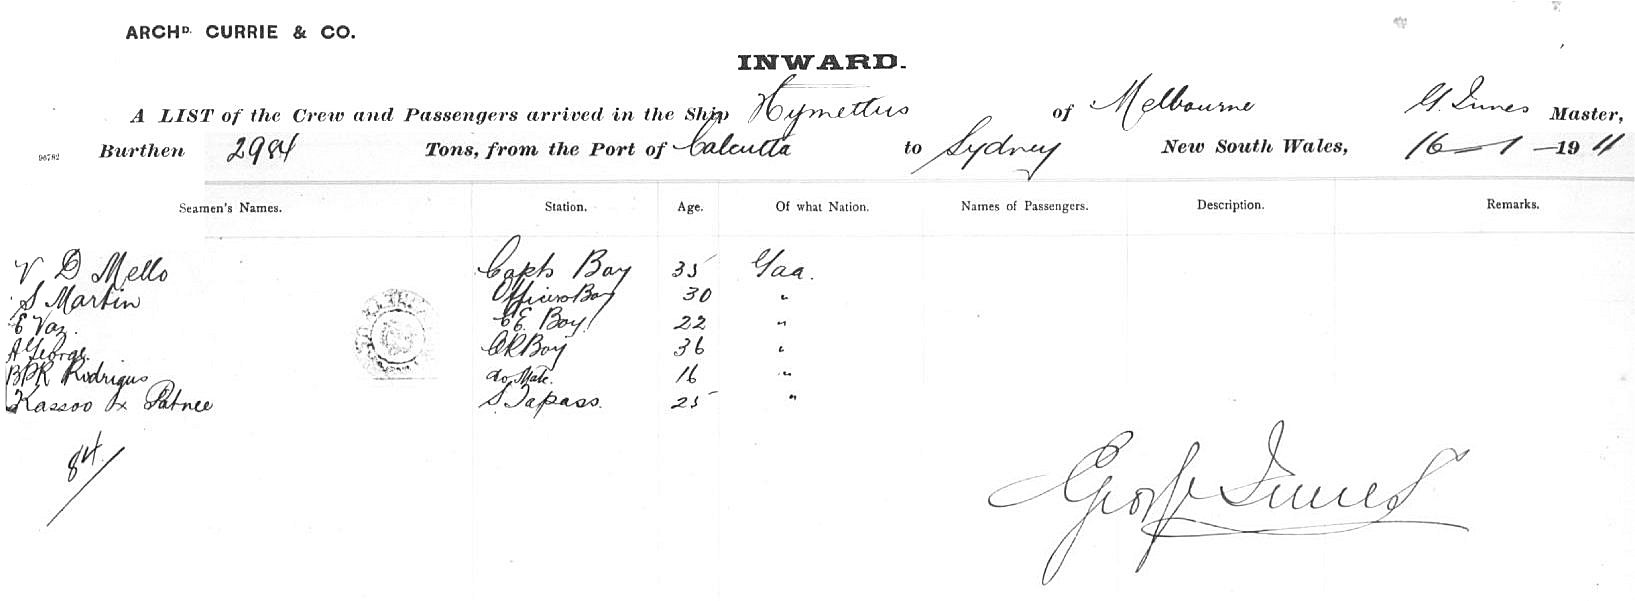 ARCHD. CURRIE & CO.
INWARD.
A LIST of the Crew and Passengers arrived in the Ship Hymettus of Melbourne G. Innes Master,
96782 Burthen 2984 Tons, from the Port of Calcutta to Sydney New South Wales, 16-1-1911
Seamen's Names. Station. Age. Of what Nation. Names of Passengers. Description. Remarks.
V D Mello Capts Boy 35 Goa.
S Martin Officers Boy 30 "
E Vaz. CE Boy 22 "
A George. ER Boy 36 "
BPR Rodrigus do Mate. 16 "
Kassoo x Patnee S. Topass. 25 "
84/
Geo Innes